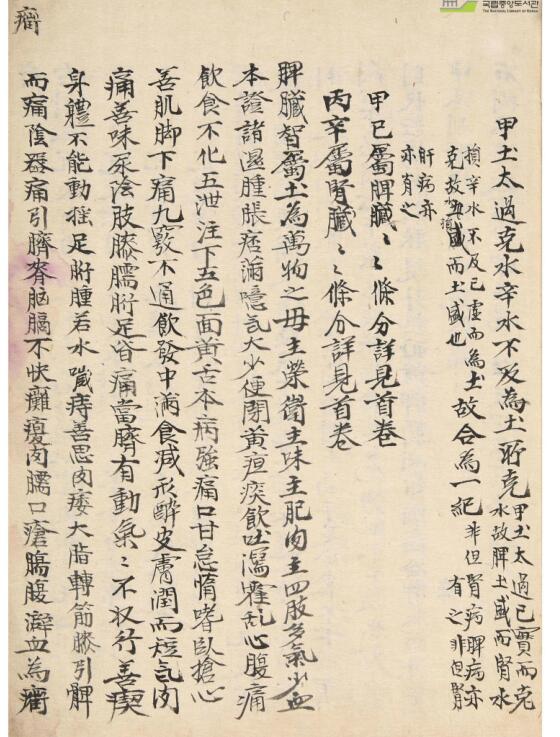 癎
국립중앙도서관
THE NATIONAL LIBRARY OF KOREA
甲土太過克水辛水不及為土所克甲土太過已實而克
水故脾土盛而腎水
損辛水不及已虛而為土故合為一紀非但腎病脾病亦
克故土盛而土盛也有之非但腎
肝病亦
亦有之
甲己屬脾臟〻〻條分詳見首卷
丙辛屬腎臟〻〻條分詳見首卷
脾臟智屬土為萬物之母主榮衛主味主肥肉主四肢多氣少血
本證諸濕腫脹痞滿噫氣大少便閉黃疸痰飮吐瀉霍乱心腹痛
飮食不化五泄注下五色面黃舌本病強痛口甘怠惰嗜臥搶心
善肌脚下痛九竅不通飮發中滿食減形醉皮膚潤而短氣肉
痛善味尿陰肢膝臑胻足皆痛當臍有動氣〻不収行善瘈
身體不能動搖足胻腫若水嚏痔善思肉痿大脂轉筋膝引髀
而痛陰器痛引臍脊胸膈不快癱瘓肉臑口瘡腸腹澼血為癎